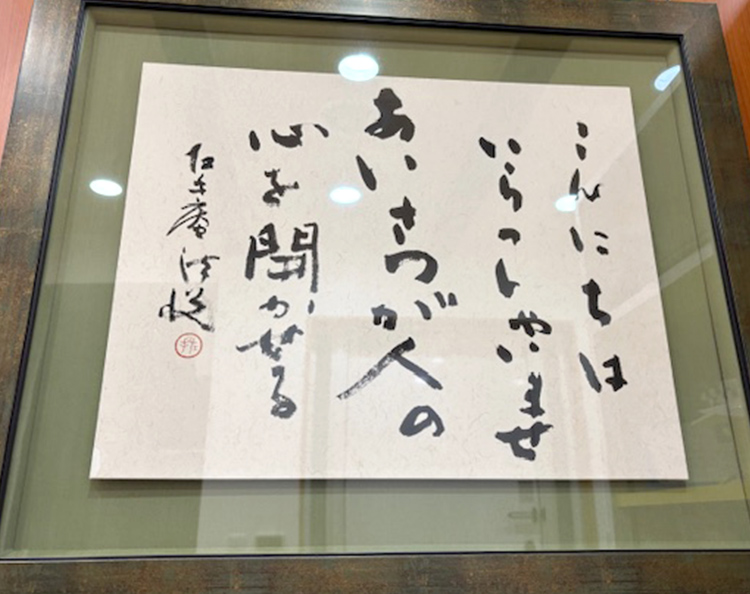 こんにちは
いらっしゃいませ
あいさつが人の
心を開かせる
庵